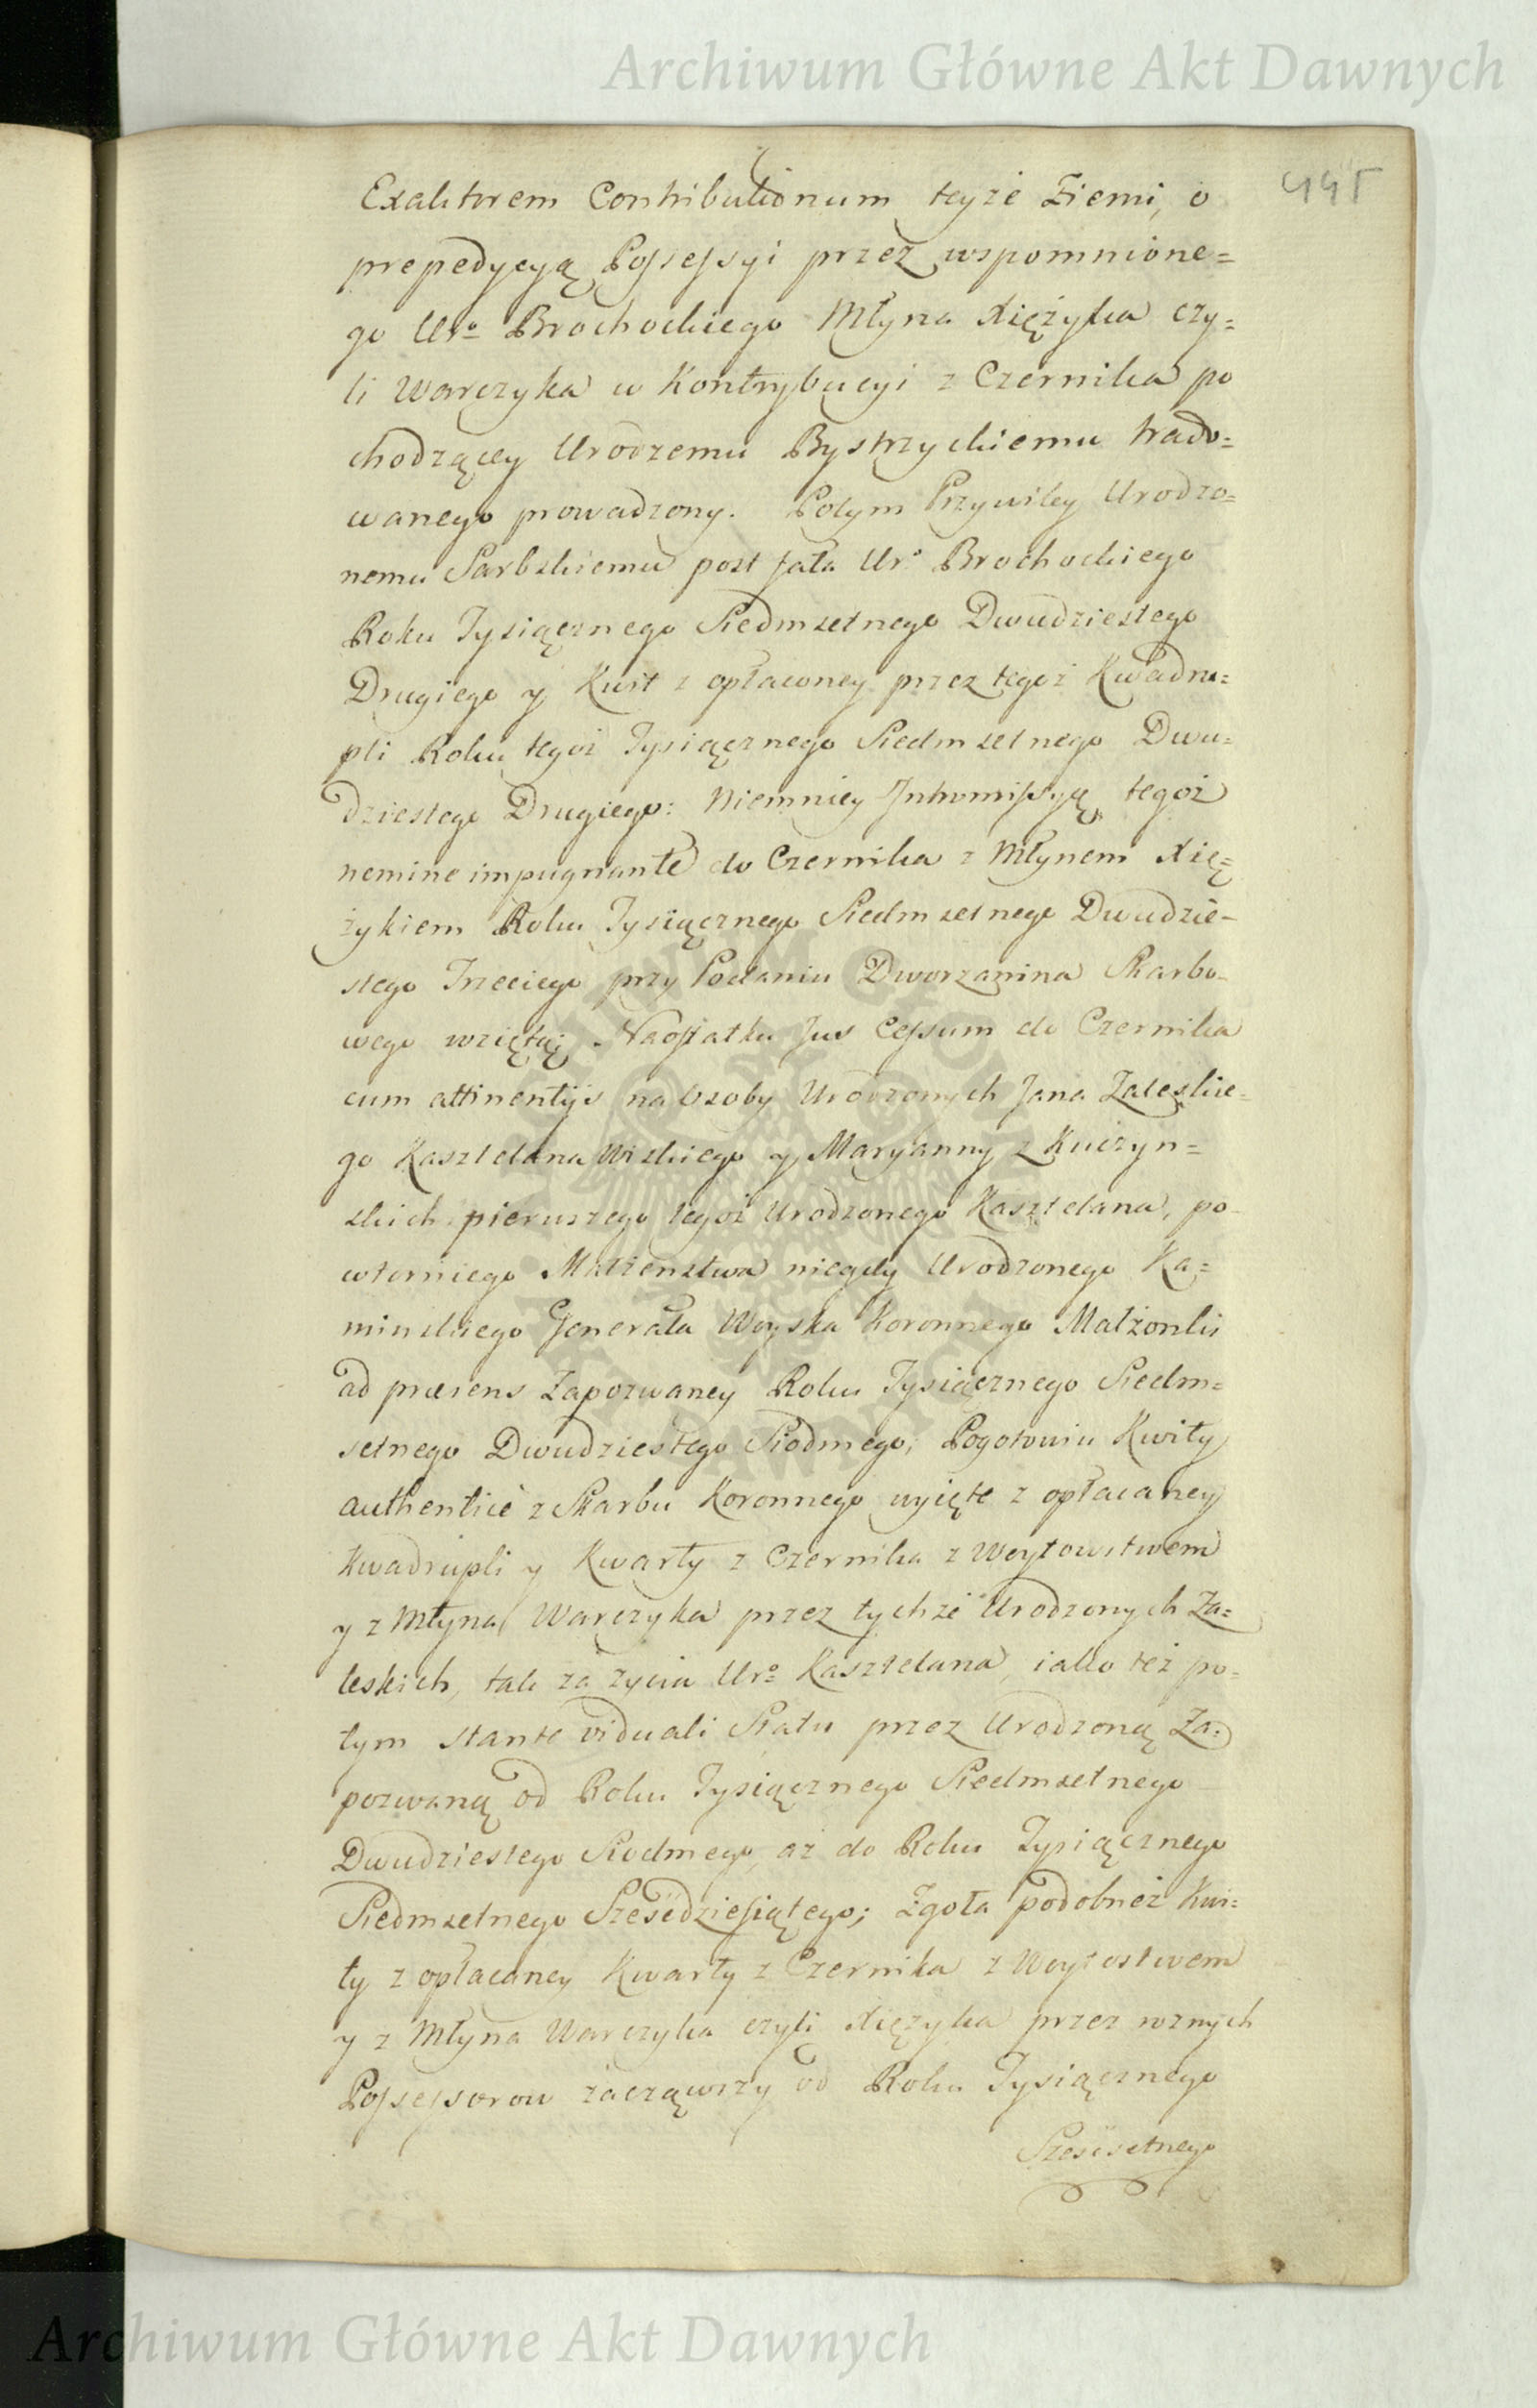 Archiwum Główne Akt Dawnych
445
Exaktorem Contributionum teyże Ziemi, o
prepedycyą Possessyi przez wspomnione=
go Uro Brochockiego Młyna Xiężyka czy=
li Warczyka w Kontrybucyi z Czernika po
chodzącey Urodzemu Bystrzyckiemu trado=
wanego prowadzony. Potym Przywiley Urodzo=
nemu Sarbskiemu post fata Uro Brochockiego
Roku Tysiącznego Siedmsetnego Dwudziestego
Drugiego y Kwit z opłaconey przez tegoż Kwadru=
pli Roku tegoż Tysiącznego Siedmsetnego Dwu=
dziestego Drugiego: Niemniey Intromissyą tegoż
nemine impugnante do Czernika z Młynem Xię=
żykiem Roku Tysiącznego Siedmsetnego Dwudzie-
stego Trzeciego przy Podaniu Dworzanina Skarbo-
wego wziętą; Naostatku Jus Cessum do Czernika
cum attinentijs na Osoby Urodzonych Jana Zaleskie-
go Kasztelana Wizkiego y Maryanny z Kuczyn=
skich pierwszego tegoż Urodzonego Kasztelana, po-
wtorniego Małżenstwa niegdy Urodzonego Ka=
minskiego Generała Woyska Koronnego Małżonki
ad præsens Zapozwaney Roku Tysiącznego Siedm=
setnego Dwudziestego Siodmego; Pogotowiu Kwity
authenticè z Skarbu Koronnego wyięte z opłacaney
Kwadrupli y Kwarty z Czernika z Woytowstwem
y z Młyna Warczyka przez tychże Urodzonych Za=
leskich, tak za życia Uro Kasztelana, iako też po=
tym stante viduali Statu przez Urodzoną Za=
pozwaną od Roku Tysiącznego Siedmsetnego
Dwudziestego Siodmego, aż do Roku Tysiącznego
Siedmsetnego Sześćdziesiątego; Zgoła podobnież Kwi=
ty z opłacaney Kwarty z Czernika z Woytostwem
y z Młyna Warczyka czyli Xiężyka przez roznych
Possessorow zacząwszy od Roku Tysiącznego
Sześćsetnego
Archiwum Główne Akt Dawnych